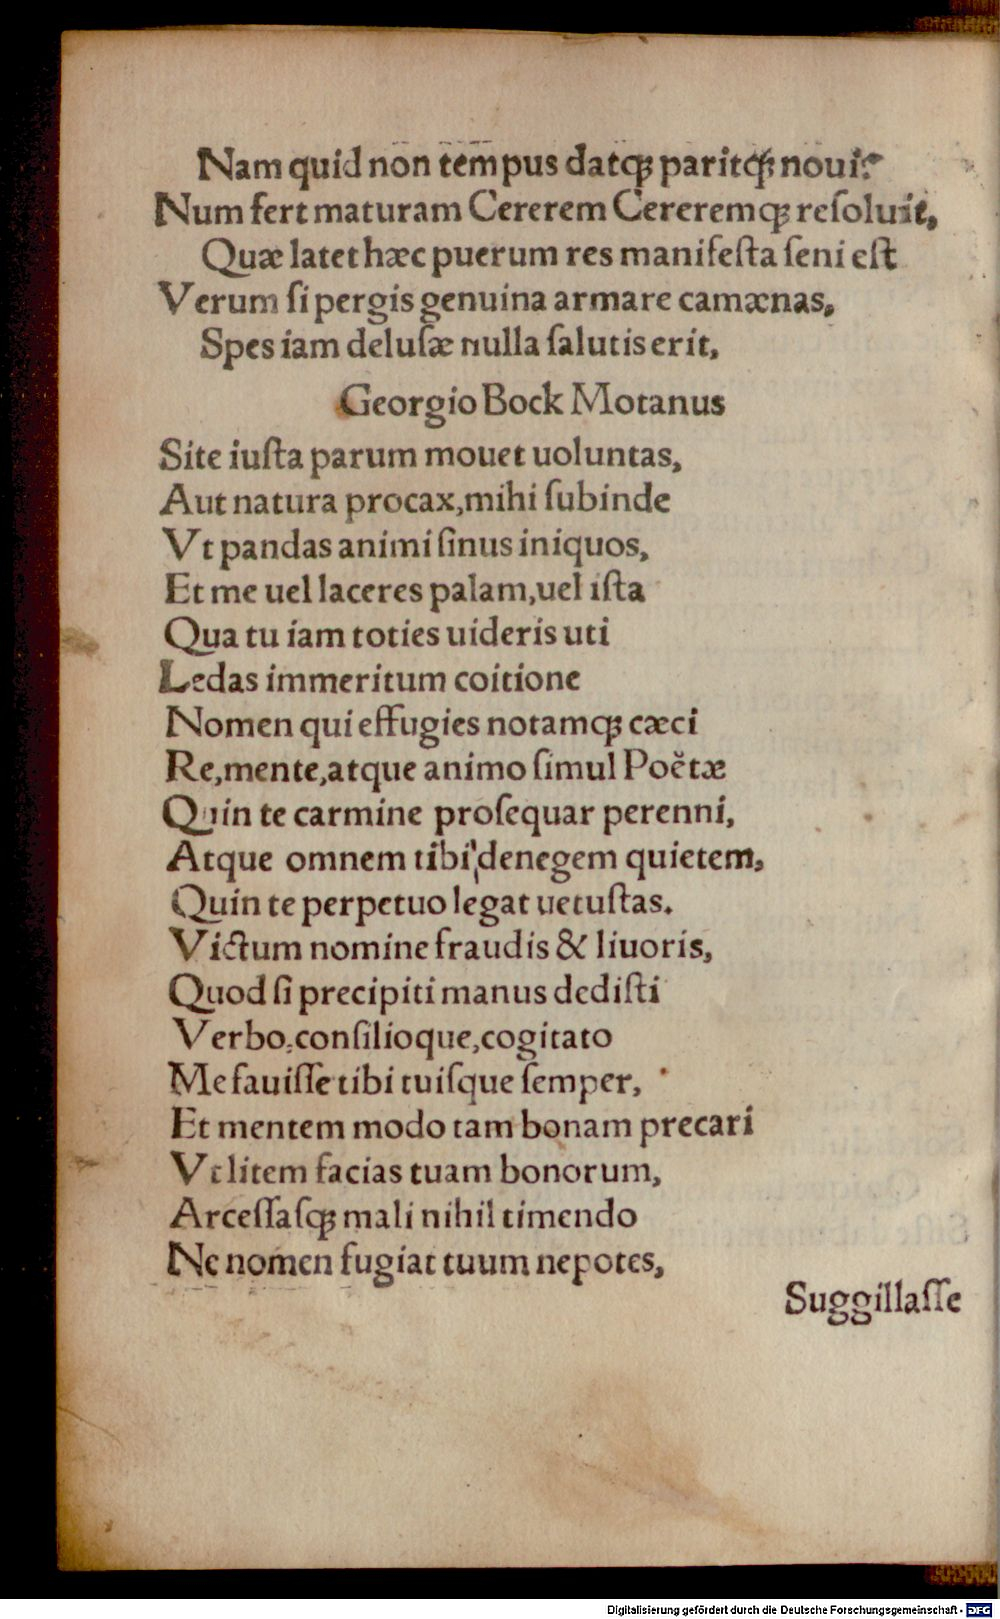 Nam quid non tempus datqꝫ paritqꝫ noui?
Num fert maturam Cererem Cereremqꝫ reſoluit,
Quæ latet hæc puerum res manifeſta ſeni eſt
Verum ſi pergis genuina armare camænas,
Spes iam deluſæ nulla ſalutis erit,
Georgio Bock Motanus
Site iuſta parum mouet uoluntas,
Aut natura procax, mihi ſubinde
Vt pandas animi ſinus iniquos,
Et me uel laceres palam, uel iſta
Qua tu iam toties uideris uti
Ledas immeritum coitione
Nomen qui effugies notamqꝫ cæci
Re, mente, atque animo ſimul Poëtæ
Quin te carmine proſequar perenni,
Atque omnem tibi denegem quietem,
Quin te perpetuo legat uetuſtas.
Victum nomine fraudis & liuoris,
Quod ſi precipiti manus dediſti
Verbo, conſilioque, cogitato
Me fauiſſe tibi tuiſque ſemper,
Et mentem modo tam bonam precari
Vt litem facias tuam bonorum,
Arceſſaſqꝫ mali nihil timendo
Ne nomen fugiat tuum nepotes,
Suggillaſſe
Digitalisierung gefördert durch die Deutsche Forschungsgemeinschaft - DFG